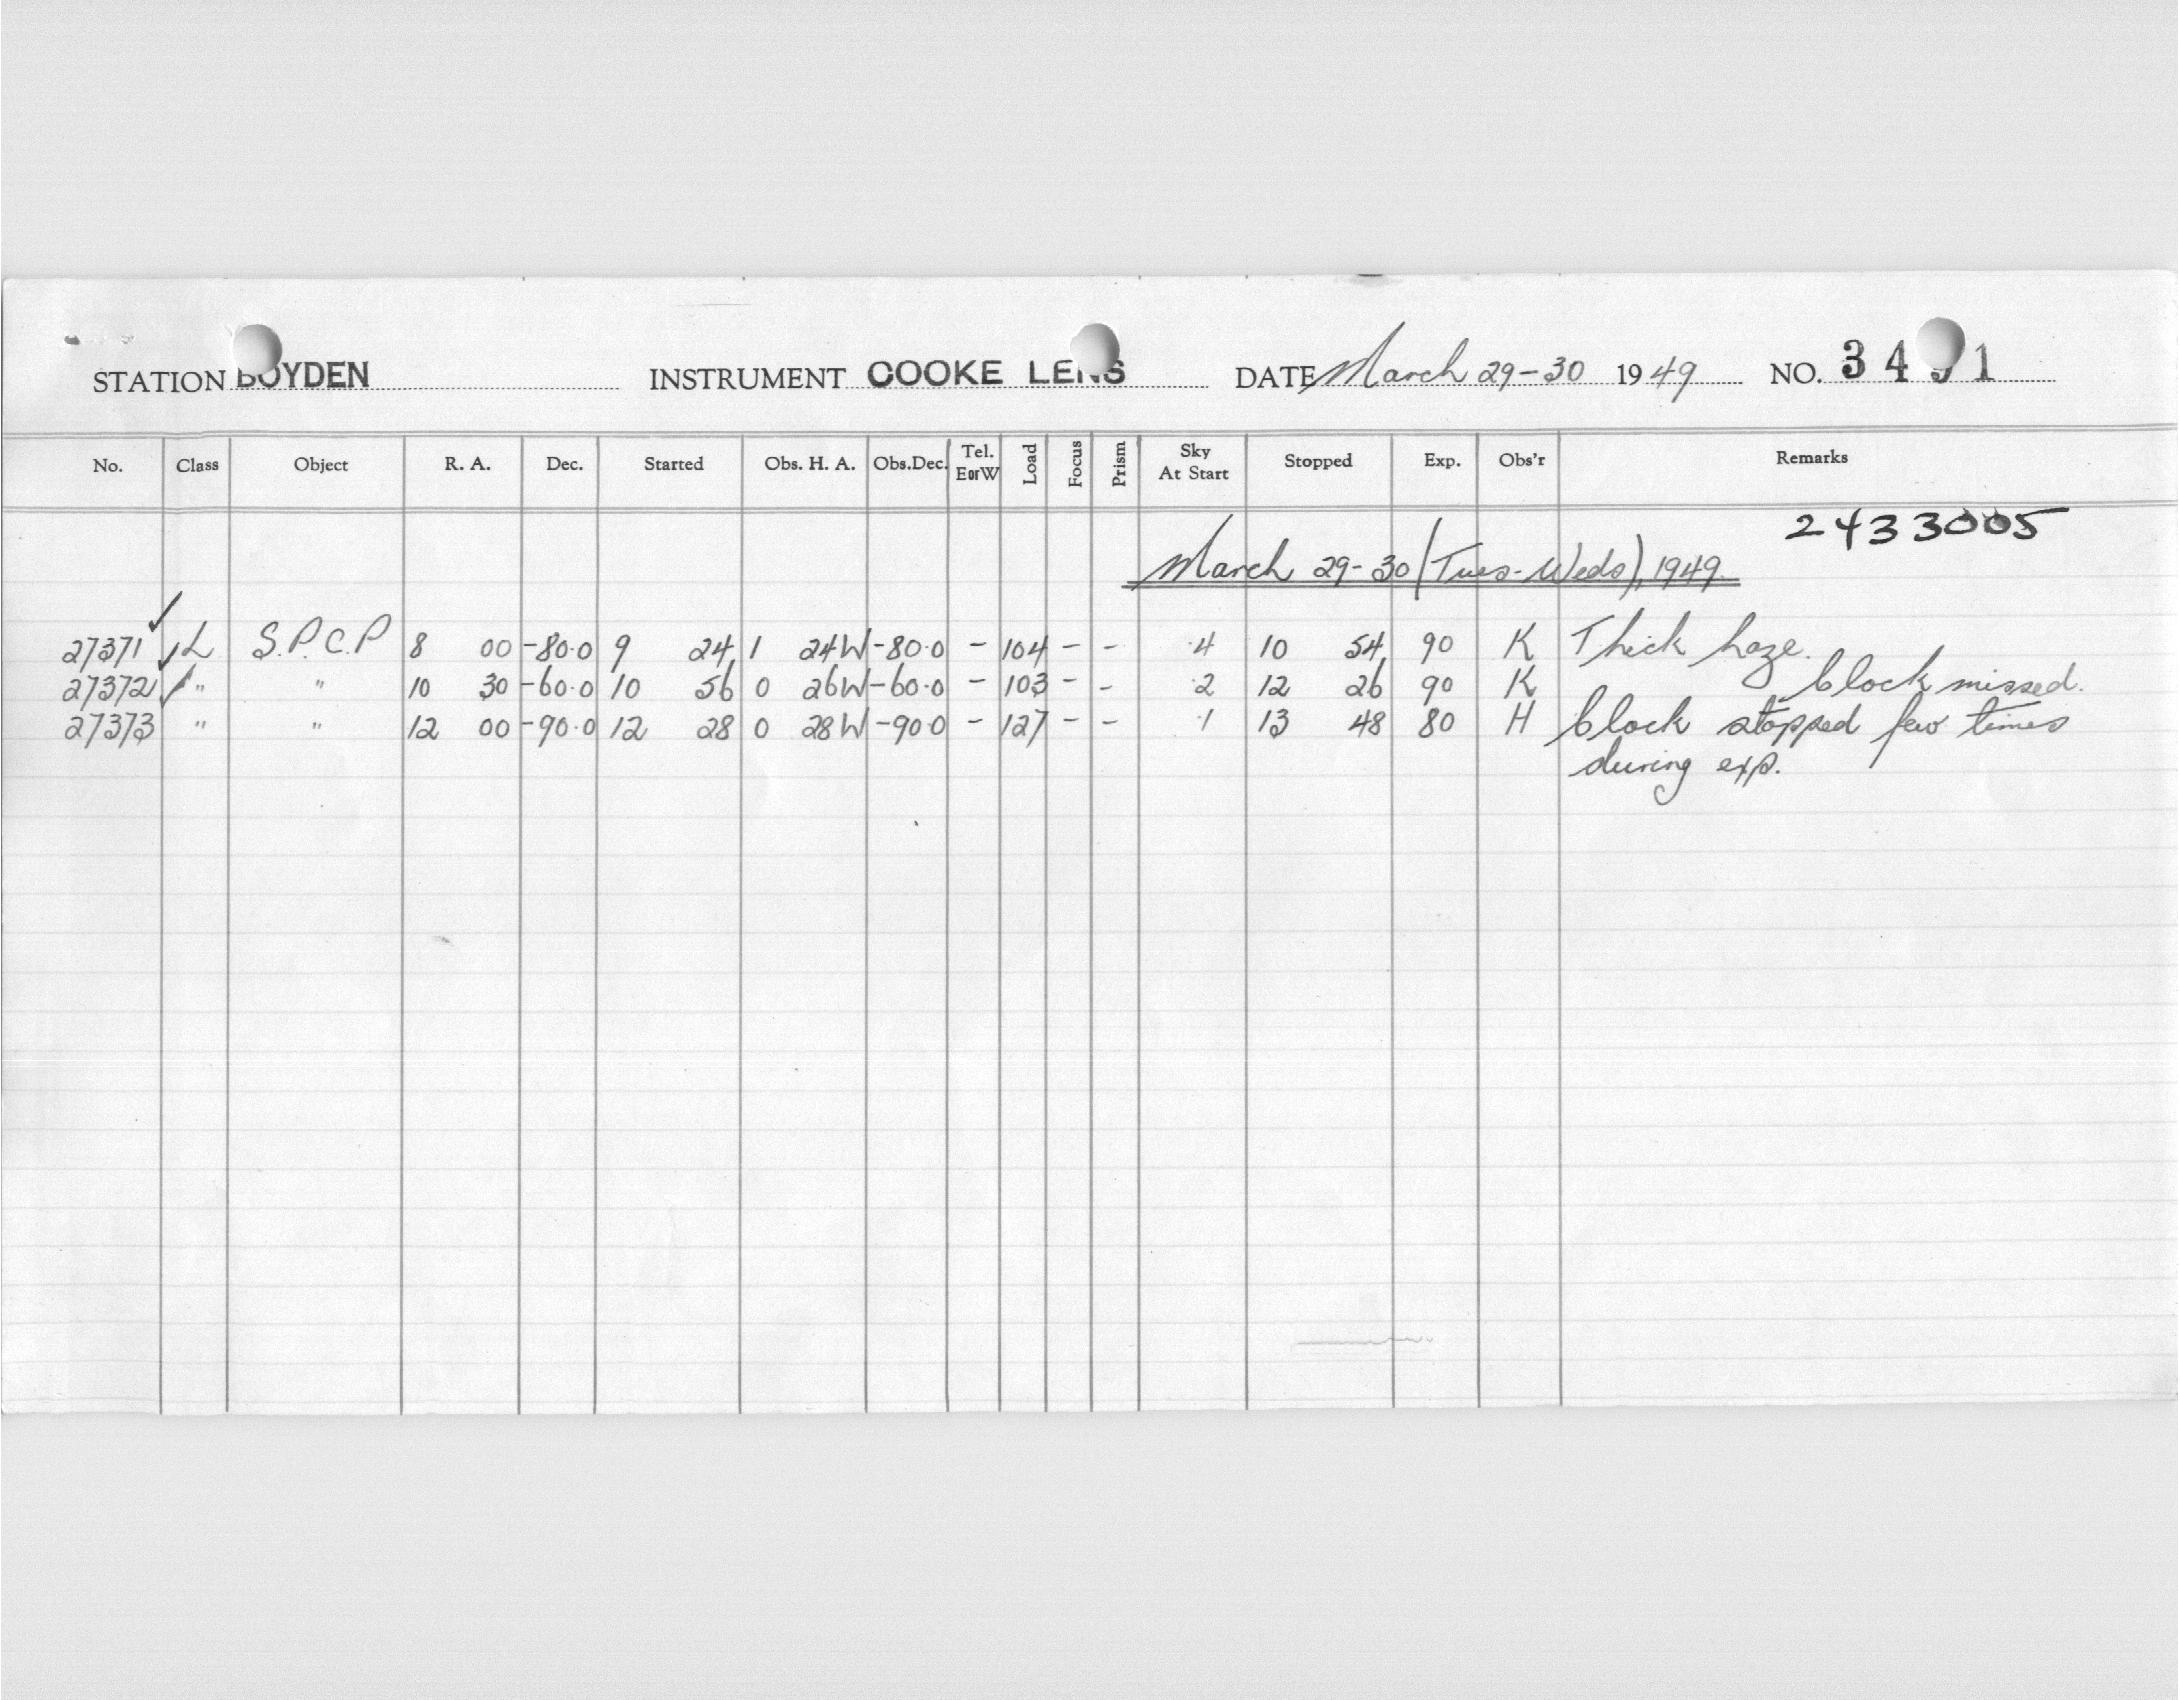 STATION BOYDEN INSTRUMENT COOKE LENS DATE March 29-30 1949 NO. 3491
No. Class Object R. A. Dec. Started Obs. H. A. Obs.Dec. Tel. EorW Load Focus Prism Sky At Start Stopped Exp. Obs'r Remarks
2433005
March 29-30 (Tues-Weds), 1949.
27371 ✓ L S.P.C.P 8 00 -80.0 9 24 1 24W -80.0 - 104 - - .4 10 54 90 K Thick haze.
27372 ✓ " " 10 30 -60.0 10 56 0 26W -60.0 - 103 - - .2 12 26 90 K Clock missed.
27373 " " 12 00 -90.0 12 28 0 28W -90.0 - 127 - - .1 13 48 80 H Clock stopped few times
during exp.